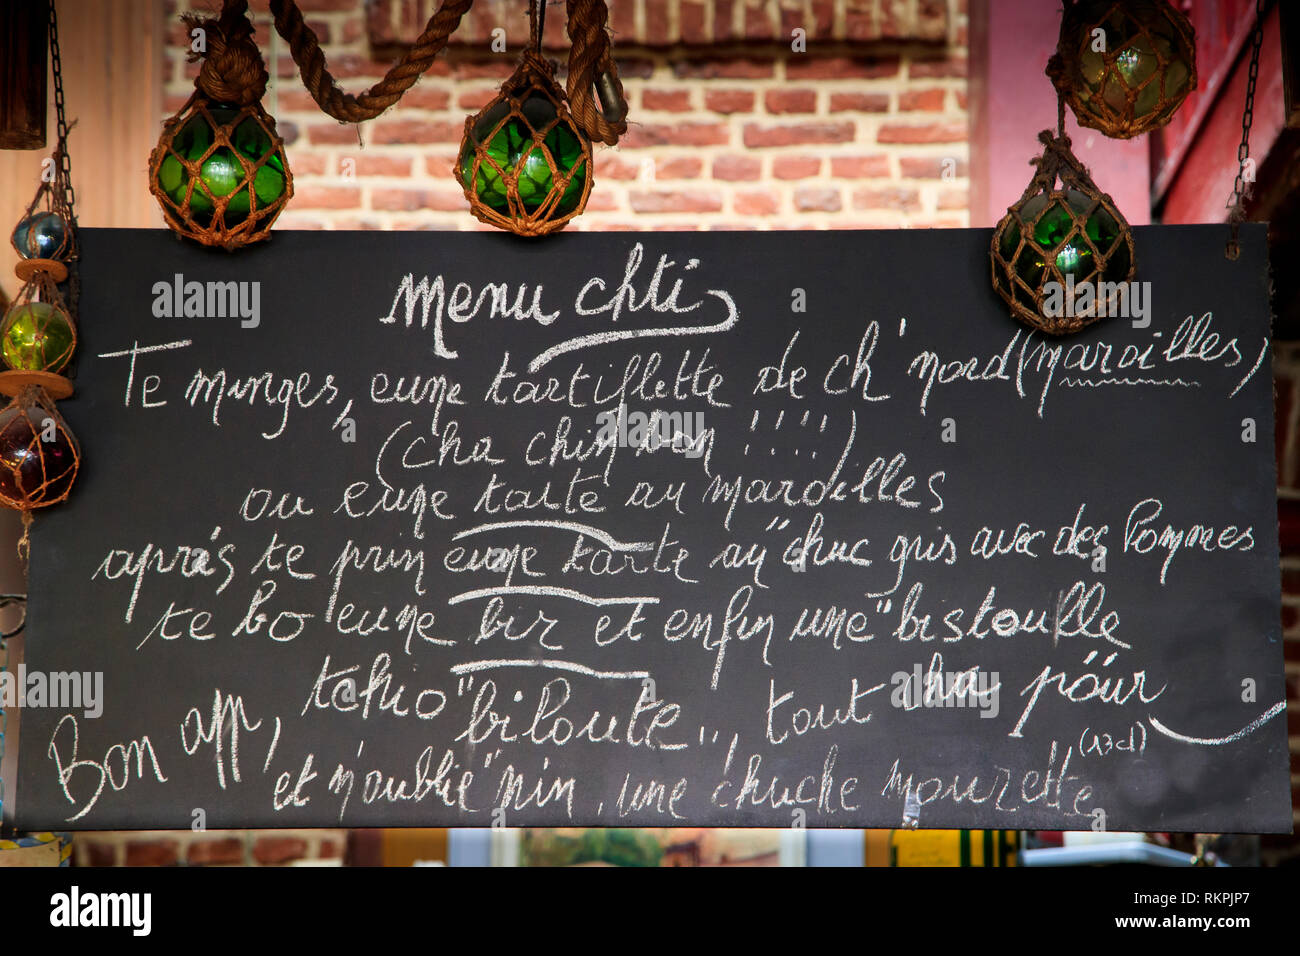 menu chti
Te minges, eune tartiflette de ch' nord (maroilles)
(cha chin bon !!!!)
ou eune tarte au maroilles
après te prin eune tarte au "chuc gris avec des Pommes
te bo eune bir et enfin une "bistoulle
tchio "biloute", tout cha pöur
Bon app, et n'oublie "nin, une "chuche mourette" (13cl)
a alamy stock photo
alamy
Image ID: RKPJP7
www.alamy.com